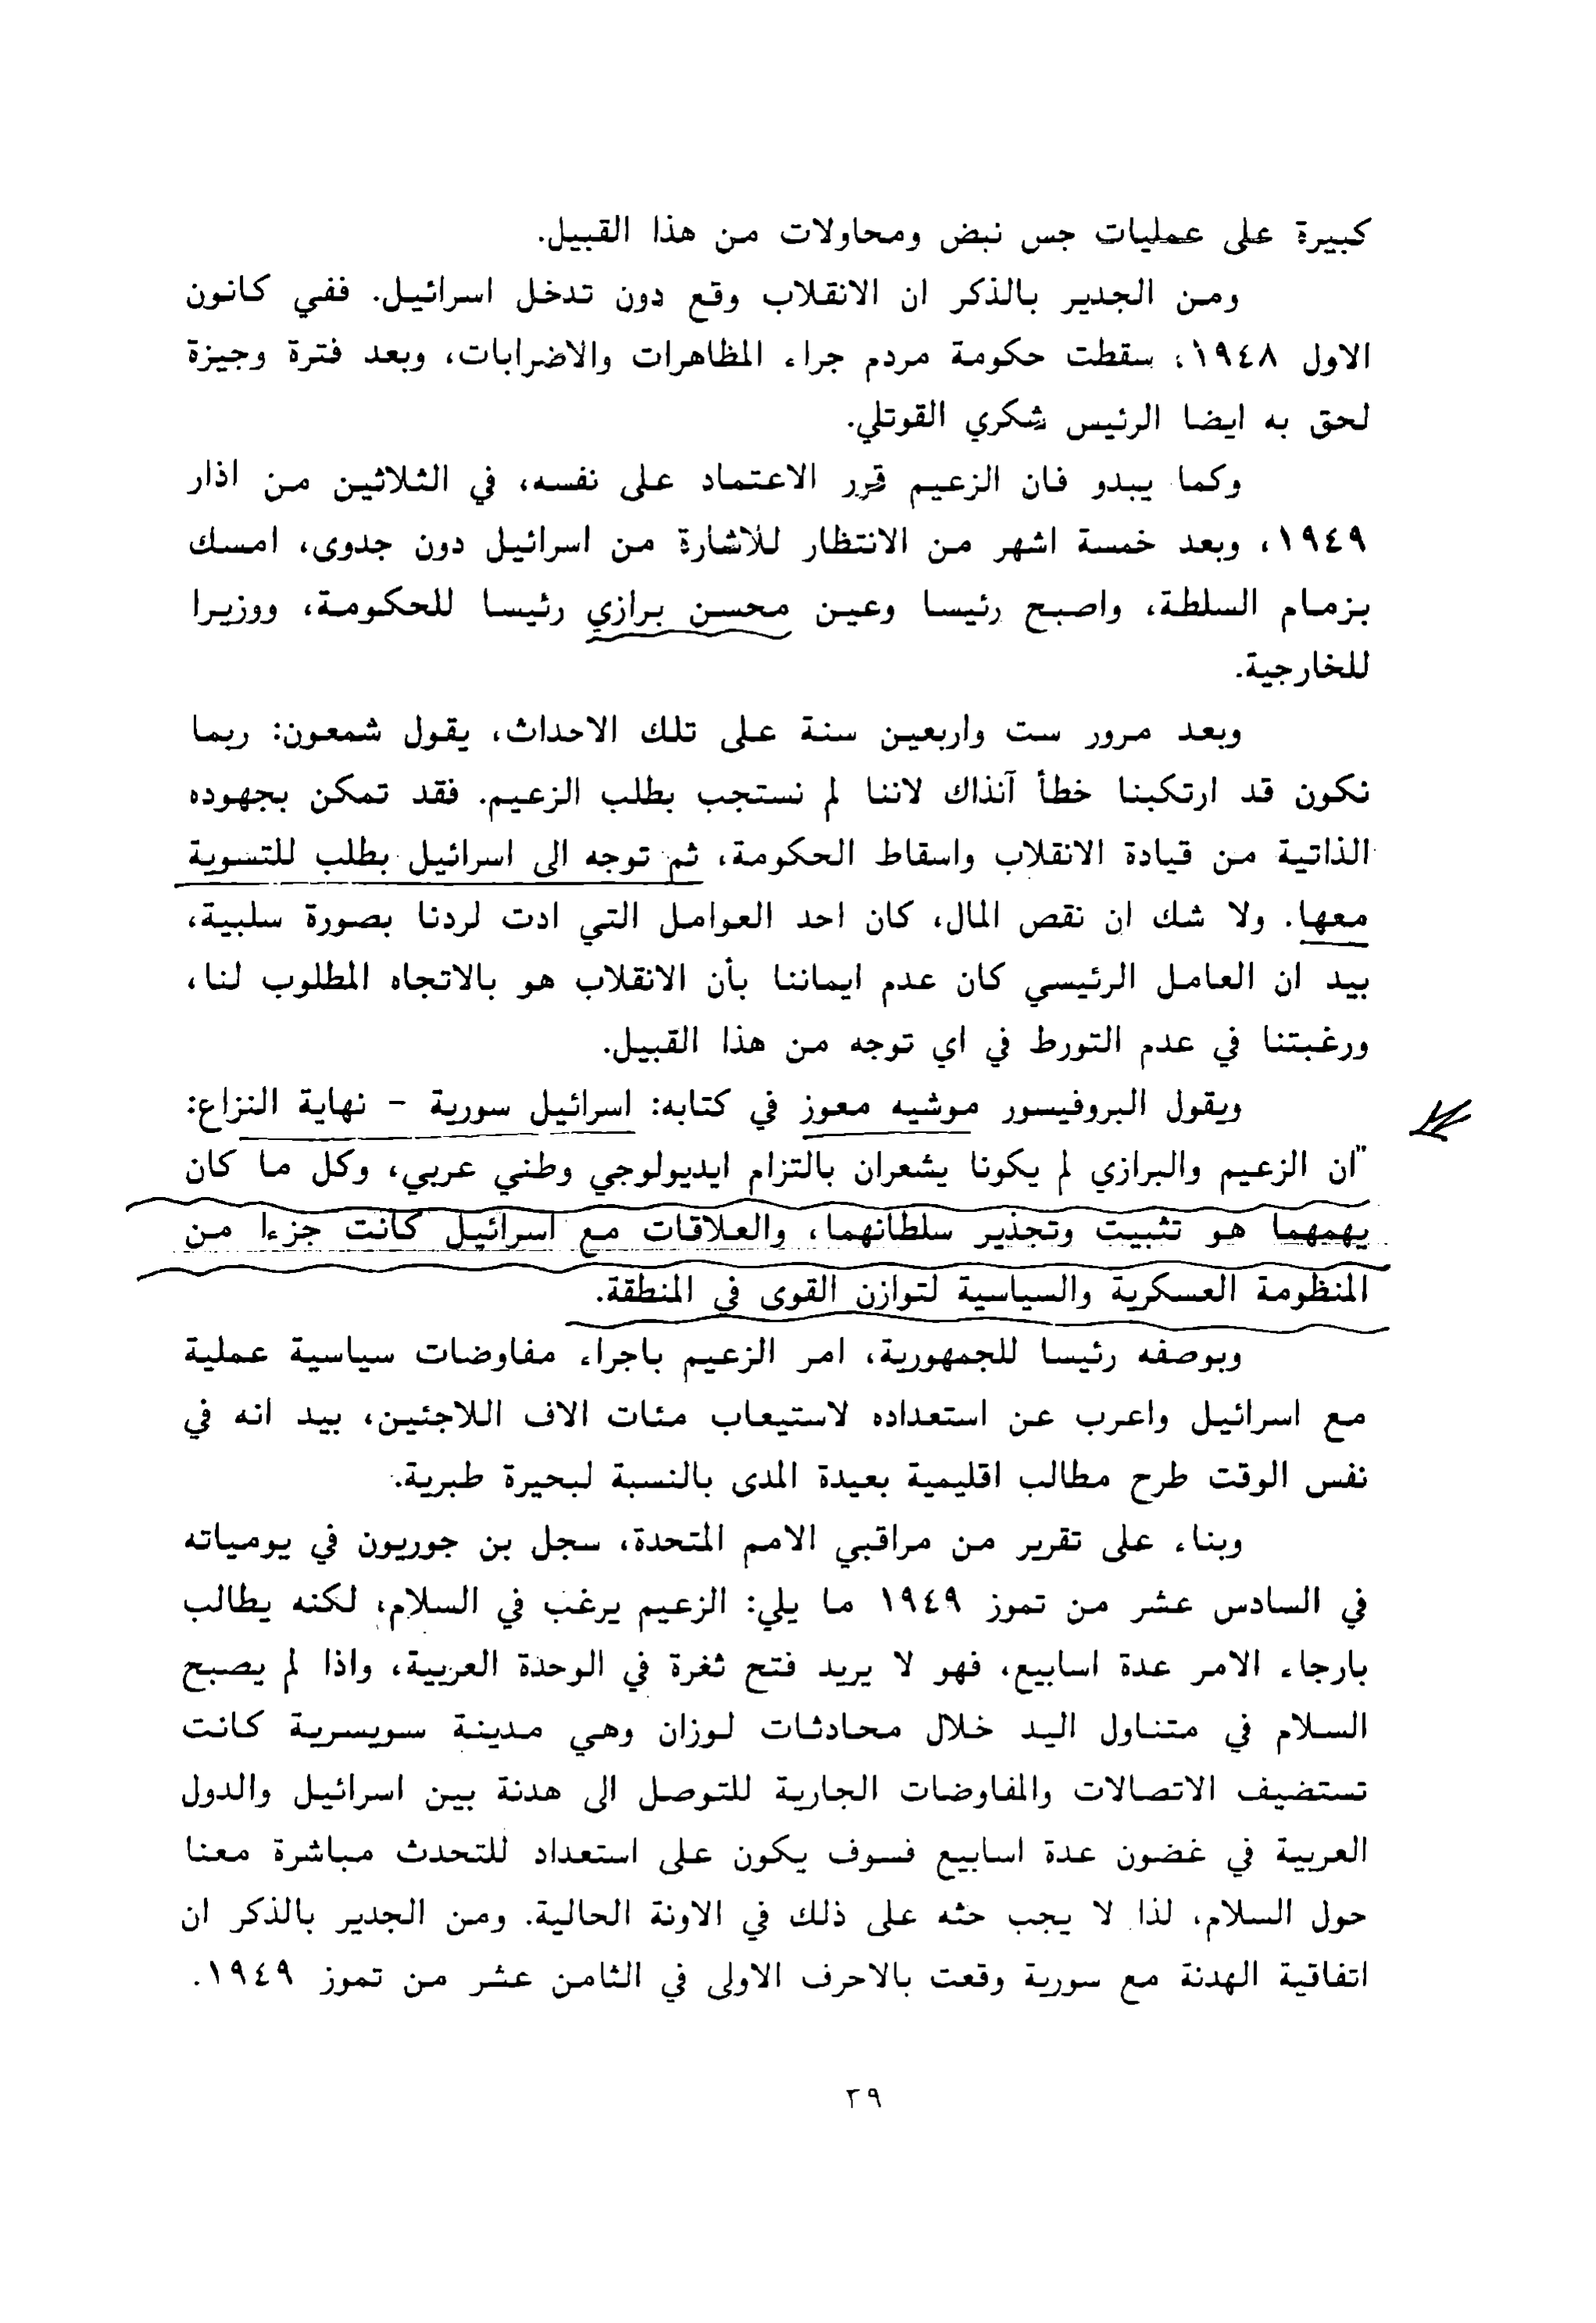 كبيرة على عمليات جس نبض ومحاولات من هذا القبيل.
ومن الجدير بالذكر ان الانقلاب وقع دون تدخل اسرائيل. ففي كانون
الاول ١٩٤٨، سقطت حكومة مردم جراء المظاهرات والاضرابات، وبعد فترة وجيزة
لحق به ايضا الرئيس شكري القوتلي.
وكما يبدو فان الزعيم قرر الاعتماد على نفسه، في الثلاثين من اذار
١٩٤٩، وبعد خمسة اشهر من الانتظار للاشارة من اسرائيل دون جدوى، امسك
بزمام السلطة، واصبح رئيسا وعين محسن برازي رئيسا للحكومة، ووزيرا
للخارجية.
وبعد مرور ست واربعين سنة على تلك الاحداث، يقول شمعون: ربما
نكون قد ارتكبنا خطأ آنذاك لاننا لم نستجب بطلب الزعيم. فقد تمكن بجهوده
الذاتية من قيادة الانقلاب واسقاط الحكومة، ثم توجه الى اسرائيل بطلب للتسوية
معها. ولا شك ان نقص المال، كان احد العوامل التي ادت لردنا بصورة سلبية،
بيد ان العامل الرئيسي كان عدم ايماننا بأن الانقلاب هو بالاتجاه المطلوب لنا،
ورغبتنا في عدم التورط في اي توجه من هذا القبيل.
ويقول البروفيسور موشيه معوز في كتابه: اسرائيل سورية - نهاية النزاع:
"ان الزعيم والبرازي لم يكونا يشعران بالتزام ايديولوجي وطني عربي، وكل ما كان
يهمهما هو تثبيت وتجذير سلطانهما، والعلاقات مع اسرائيل كانت جزءا من
المنظومة العسكرية والسياسية لتوازن القوى في المنطقة.
وبوصفه رئيسا للجمهورية، امر الزعيم باجراء مفاوضات سياسية عملية
مع اسرائيل واعرب عن استعداده لاستيعاب مئات الاف اللاجئين، بيد انه في
نفس الوقت طرح مطالب اقليمية بعيدة المدى بالنسبة لبحيرة طبرية.
وبناء على تقرير من مراقبي الامم المتحدة، سجل بن جوريون في يومياته
في السادس عشر من تموز ١٩٤٩ ما يلي: الزعيم يرغب في السلام، لكنه يطالب
بارجاء الامر عدة اسابيع، فهو لا يريد فتح ثغرة في الوحدة العربية، واذا لم يصبح
السلام في متناول اليد خلال محادثات لوزان وهي مدينة سويسرية كانت
تستضيف الاتصالات والمفاوضات الجارية للتوصل الى هدنة بين اسرائيل والدول
العربية في غضون عدة اسابيع فسوف يكون على استعداد للتحدث مباشرة معنا
حول السلام، لذا لا يجب حثه على ذلك في الاونة الحالية. ومن الجدير بالذكر ان
اتفاقية الهدنة مع سورية وقعت بالاحرف الاولى في الثامن عشر من تموز ١٩٤٩.
٢٩